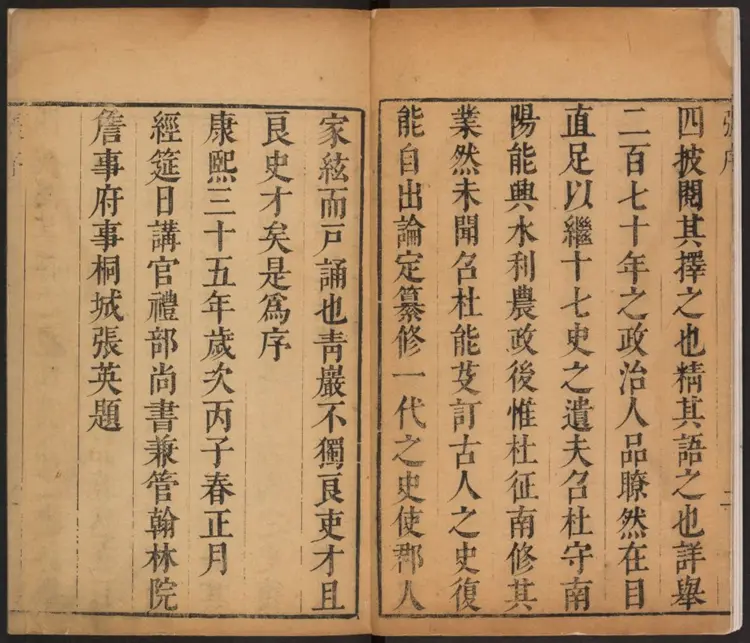 張序
四披閱其擇之也精其語之也詳舉
二百七十年之政治人品瞭然在目
直足以繼十七史之遺夫召杜守南
陽能興水利農政後惟杜征南修其
業然未聞召杜能芟訂古人之史復
能自出論定纂修一代之史使郡人
家絃而戸誦也靑巖不獨良吏才且
良史才矣是爲序
康熙三十五年歲次丙子春正月
經筵日講官禮部尚書兼管翰林院
詹事府事桐城張英題